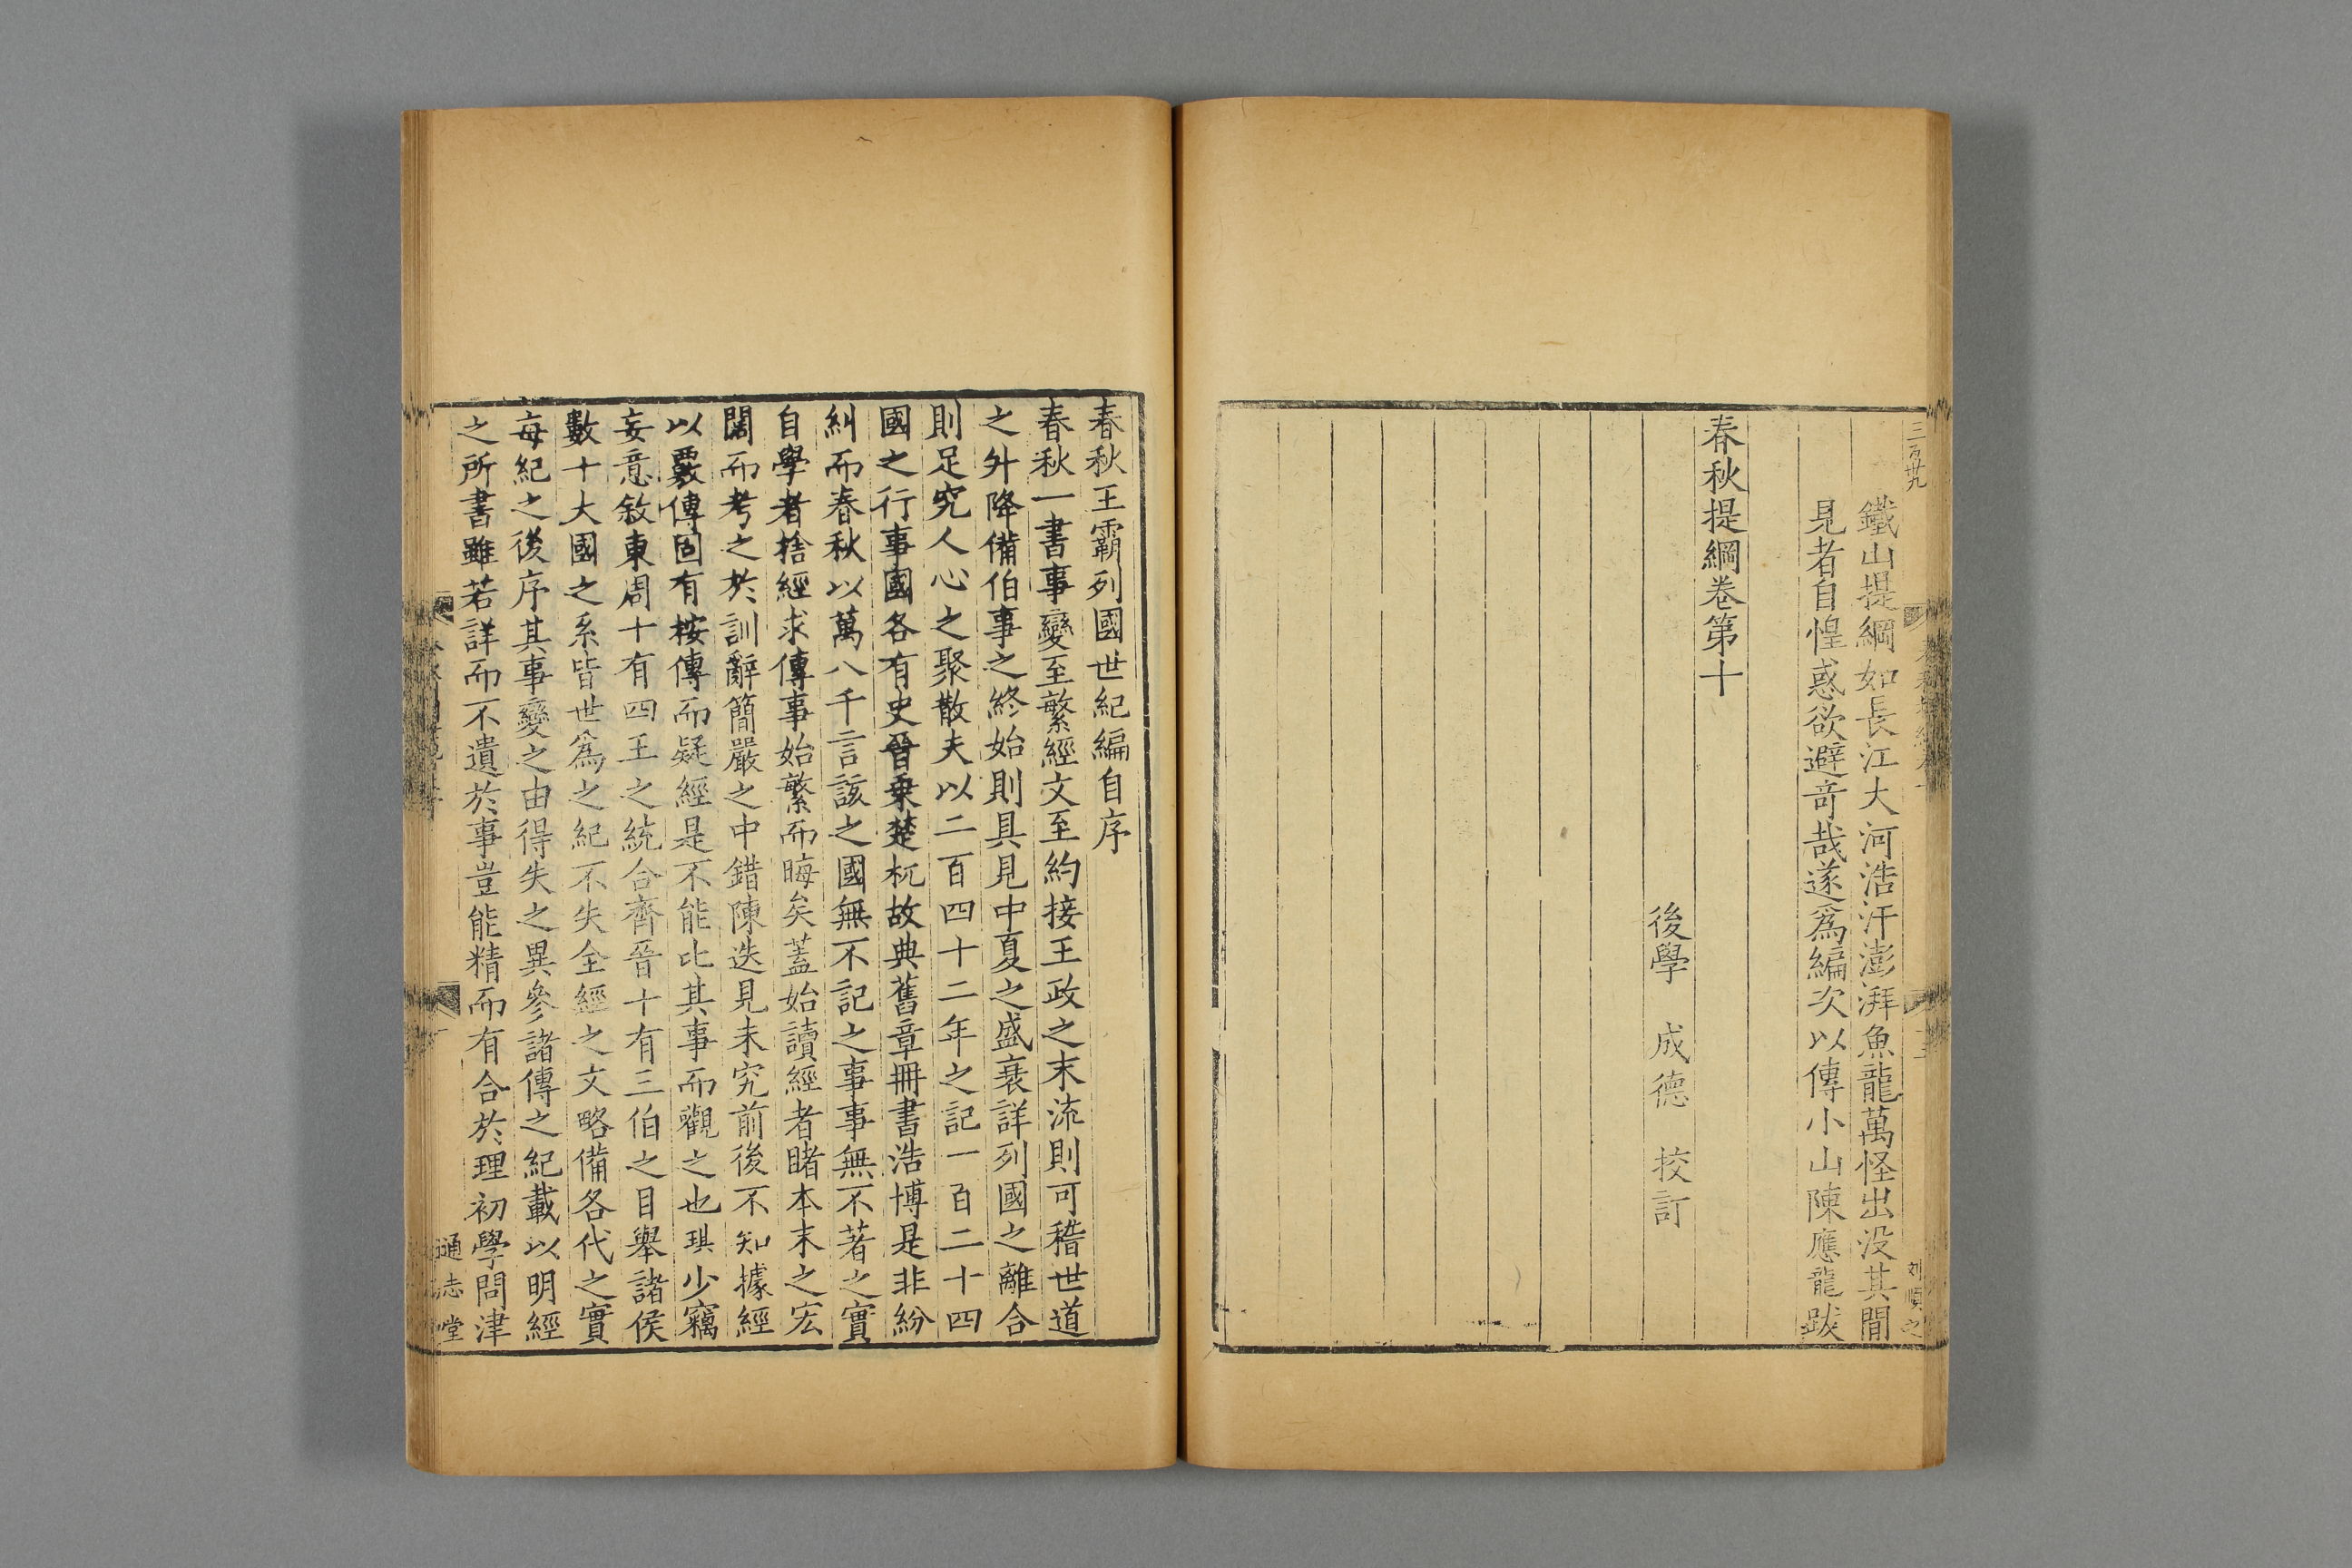 三百卅九
鐵山提綱如長江大河浩汗澎湃魚龍萬怪出没其間
見者自惶惑欲避竒哉遂爲編次以傳小山陳應龍跋
春秋提綱卷第十
後學 成德 挍訂
刘順之
春秋王霸列國世紀編自序
春秋一書事變至繁經文至約接王政之末流則可稽世道
之外降備伯事之終始則具見中夏之盛衰詳列國之離合
則足究人心之聚散夫以二百四十二年之記一百二十四
國之行事國各有史晉乗楚杌故典舊章冊書浩博是非紛
糾而春秋以萬八千言該之國無不記之事事無不著之實
自學者捨經求傳事始繁而晦矣蓋始讀經者睹本末之宏
闊而考之於訓辭簡嚴之中錯陳迭見未究前後不知據經
以覈傳固有按傳而疑經是不能比其事而觀之也琪少竊
妄意敘東周十有四王之統合齊晉十有三伯之目舉諸侯
數十大國之系皆世爲之紀不失全經之文略備各代之實
每紀之後序其事變之由得失之異參諸傳之紀載以明經
之所書雖若詳而不遺於事豈能精而有合於理初學問津
通志堂